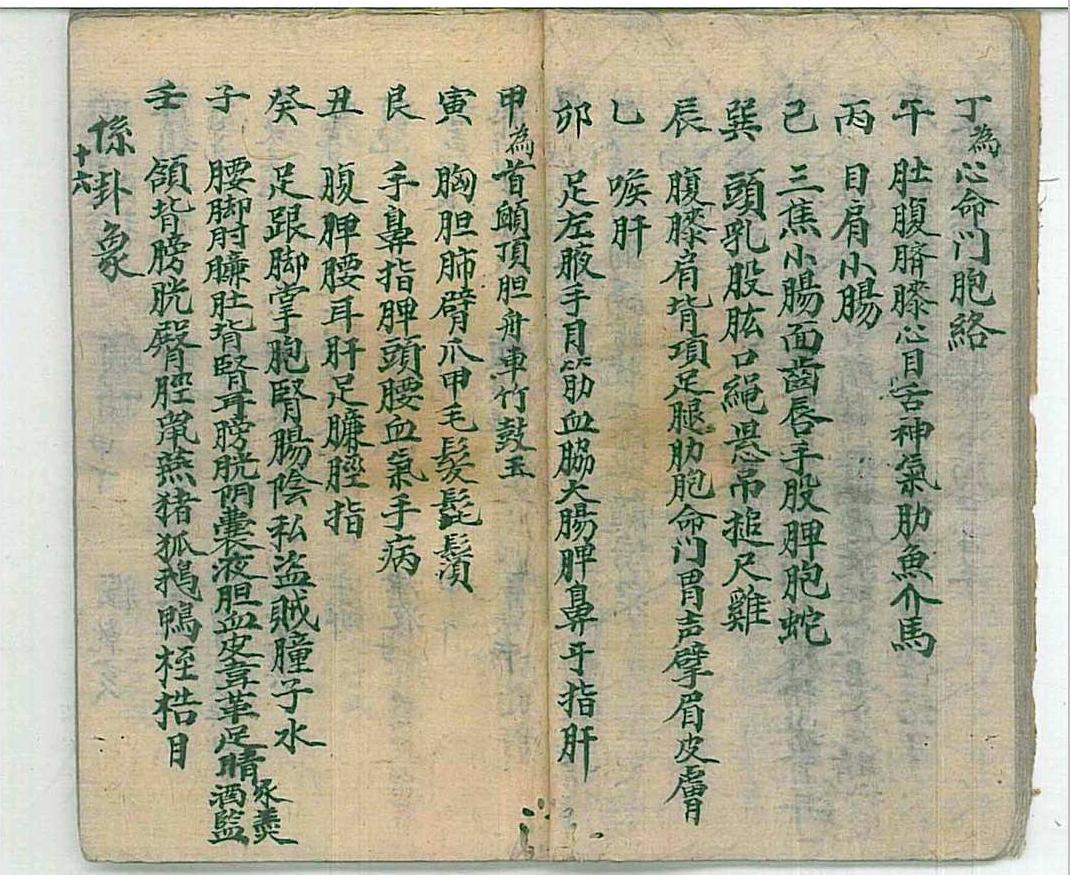 丁為心命门胞絡
午 肚腹臍膝心目舌神氣肋魚介馬
丙 目肩小腸
己 三焦小腸面齒唇手股脾胞蛇
巽 頭乳股肱口繩恳吊搥尺雞
辰 腹膝肩背項足腿肋胞命门胃声擘眉皮膚
乚 喉肝
卯 足左腋手月筋血脇大腸脾鼻手指肝
甲為首顱頂胆舟車竹鼓玉
寅 胸胆肺臂爪甲毛髮髭鬚
艮 手鼻指脾頭腰血氣手病
丑 腹脾腰耳肝足臁脛指
癸 足跟脚掌胞腎腸陰私盗賊瞳子水
子 腰脚肘臁肚背腎耳膀胱阴囊液胆血皮韋革足睛 豕羹酒監
壬 頷背膀胱臀脛鼠燕猪狐鵝鴨桎梏目
係卦象
十六